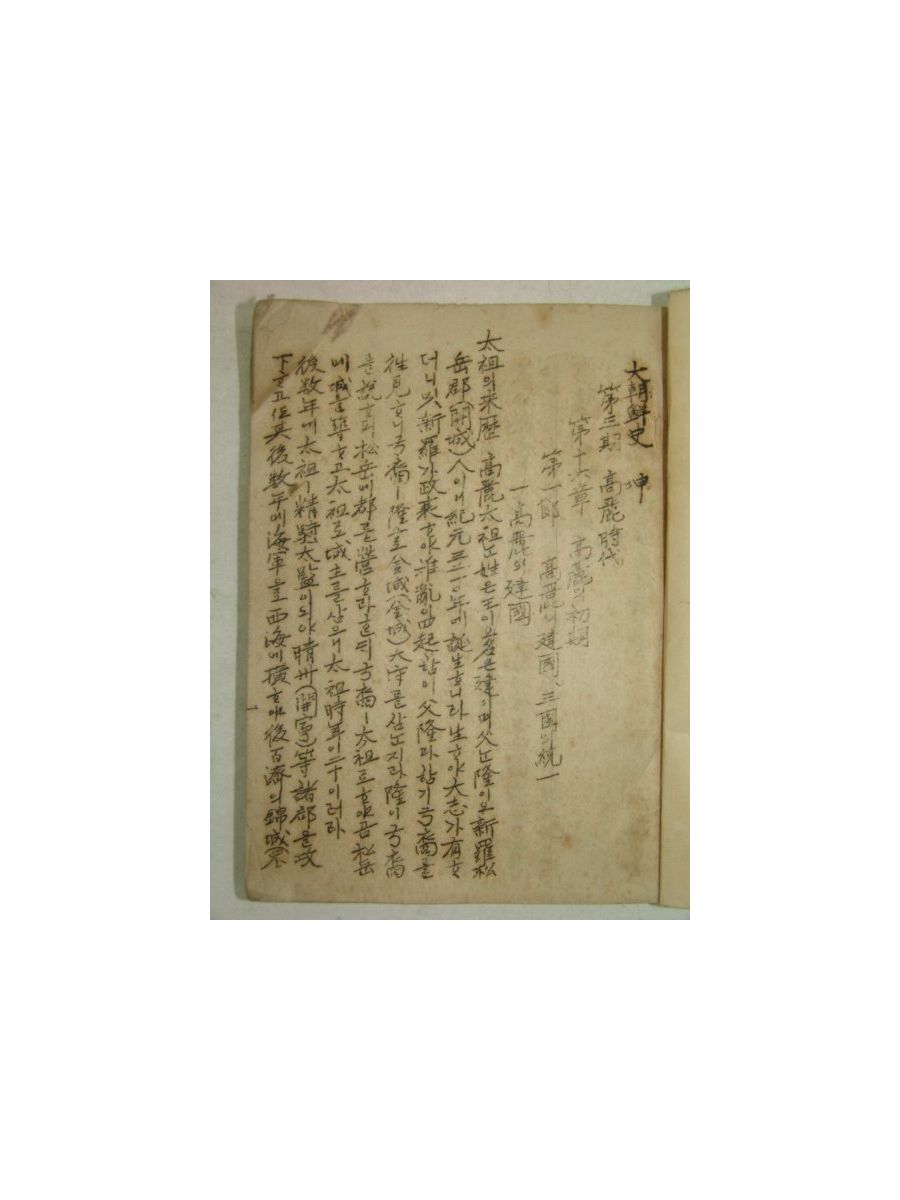 大朝鮮史 坤
第三期 高麗時代
第十六章 高麗의 初期
第一節 高麗의 建國、三國의 統一
一 高麗의 建國
太祖의 来歷 高麗太祖는 姓은 王이오 名은 建이며 父는 隆이오 新羅松
岳郡(開城)人이니 紀元三二一〇年에 誕生하니라 生하야 大志가 有하
더니 및 新羅가 政衰하야 亂이 起함이 父隆과 함기 弓裔를
往見하니 弓裔ㅣ 隆으로 金城 太守를 삼는지라 隆이 弓裔
를 說하되 松岳에 都를 營하라 弓裔ㅣ 太祖로 하야곰 松岳
에 城을 築하고 太祖로 城主를 삼으니 太祖時年이 二十이러라
後数年에 太祖ㅣ 精騎太監이 되야 晴州(開寧)等諸郡을 攻
下하고 其後数年에 海軍을 西海에 擴하야 後百濟의 錦城